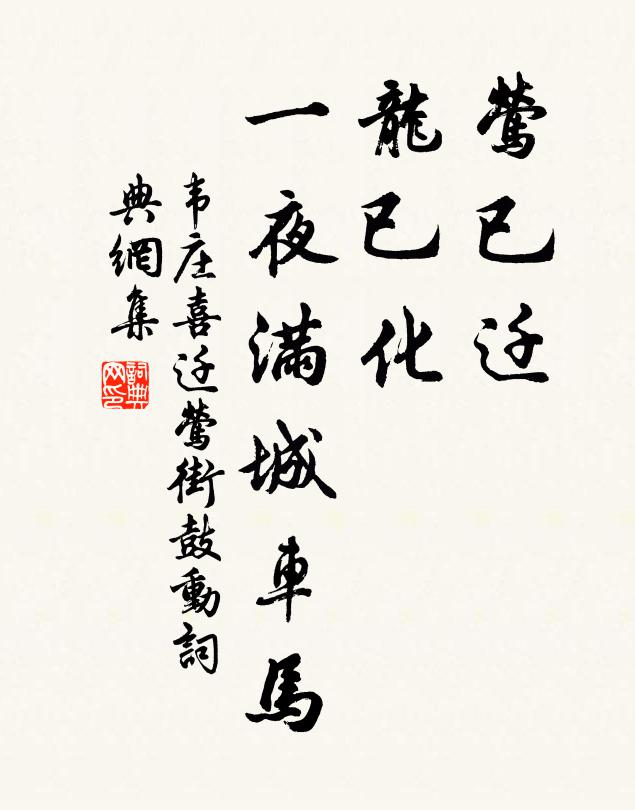 鶯已迁
龍已化
一夜滿城車馬
韦庄喜迁鶯街鼓動詞
典網集
詞典网印